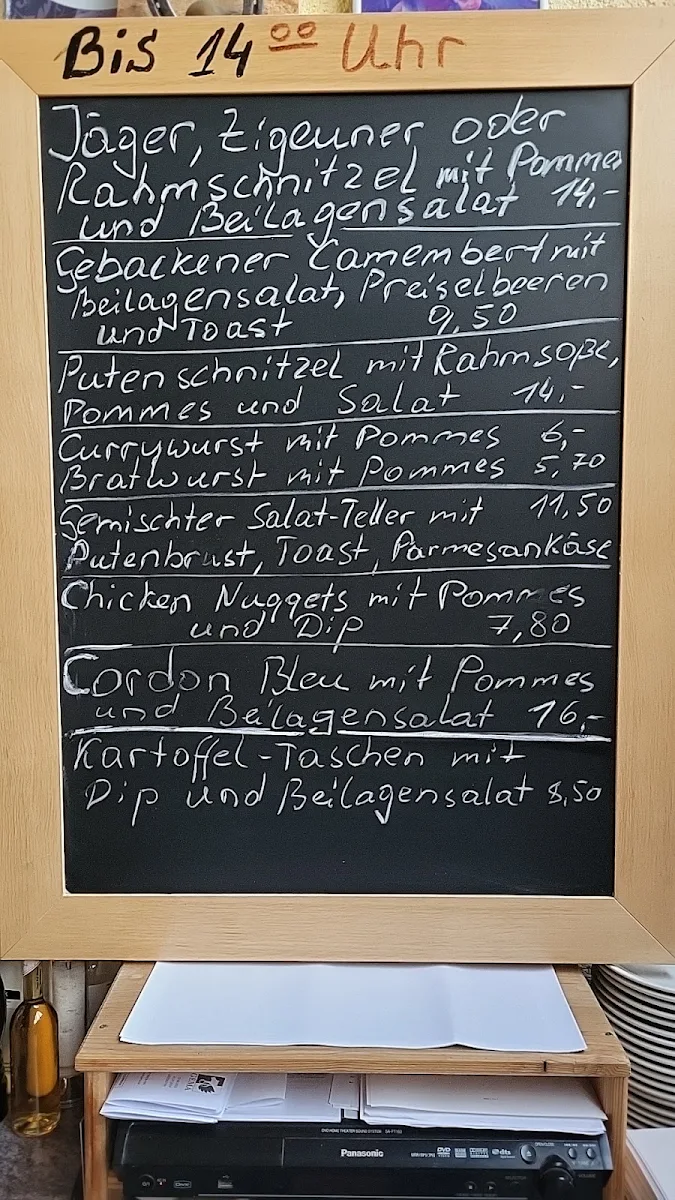 Bis 14 00 Uhr
Jäger, Zigeuner oder
Rahmschnitzel mit Pommes
und Beilagensalat 14,-
Gebackener Camembert mit
Beilagensalat, Preiselbeeren
und Toast 9,50
Putenschnitzel mit Rahmsoße,
Pommes und Salat 14,-
Currywurst mit Pommes 6,-
Bratwurst mit Pommes 5,70
Gemischter Salat-Teller mit 11,50
Putenbrust, Toast, Parmesankäse
Chicken Nuggets mit Pommes
und Dip 7,80
Cordon Bleu mit Pommes
und Beilagensalat 16,-
Kartoffel-Taschen mit
Dip und Beilagensalat 8,50
Panasonic